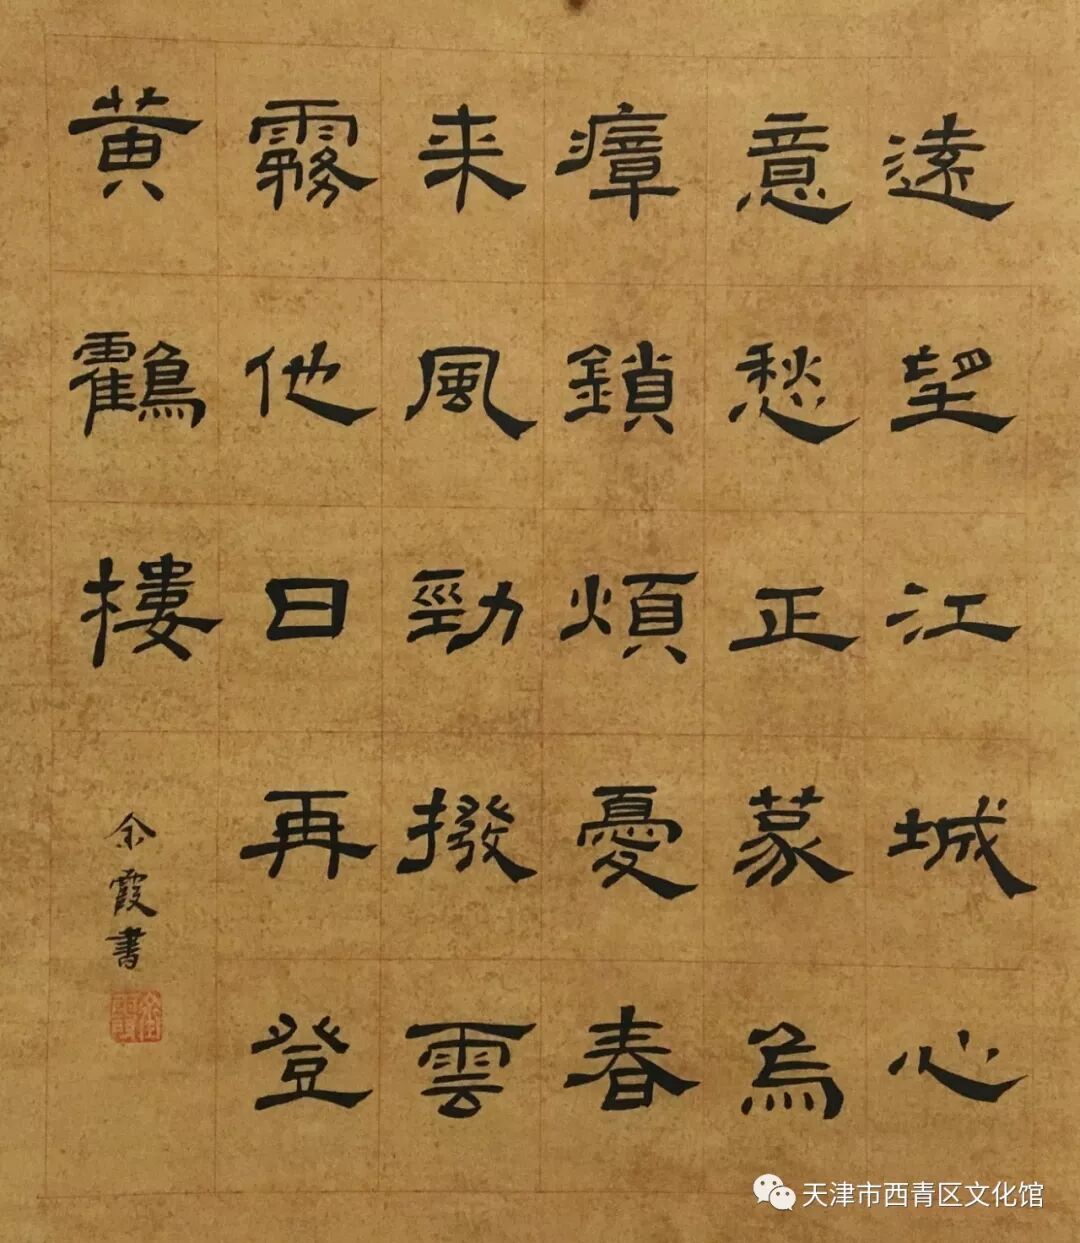 遠望江城心
意愁正蒙為
瘴鎖煩憂春
来風勁撥雲
霧他日再登
黄鶴樓
余霞書
天津市西青区文化馆